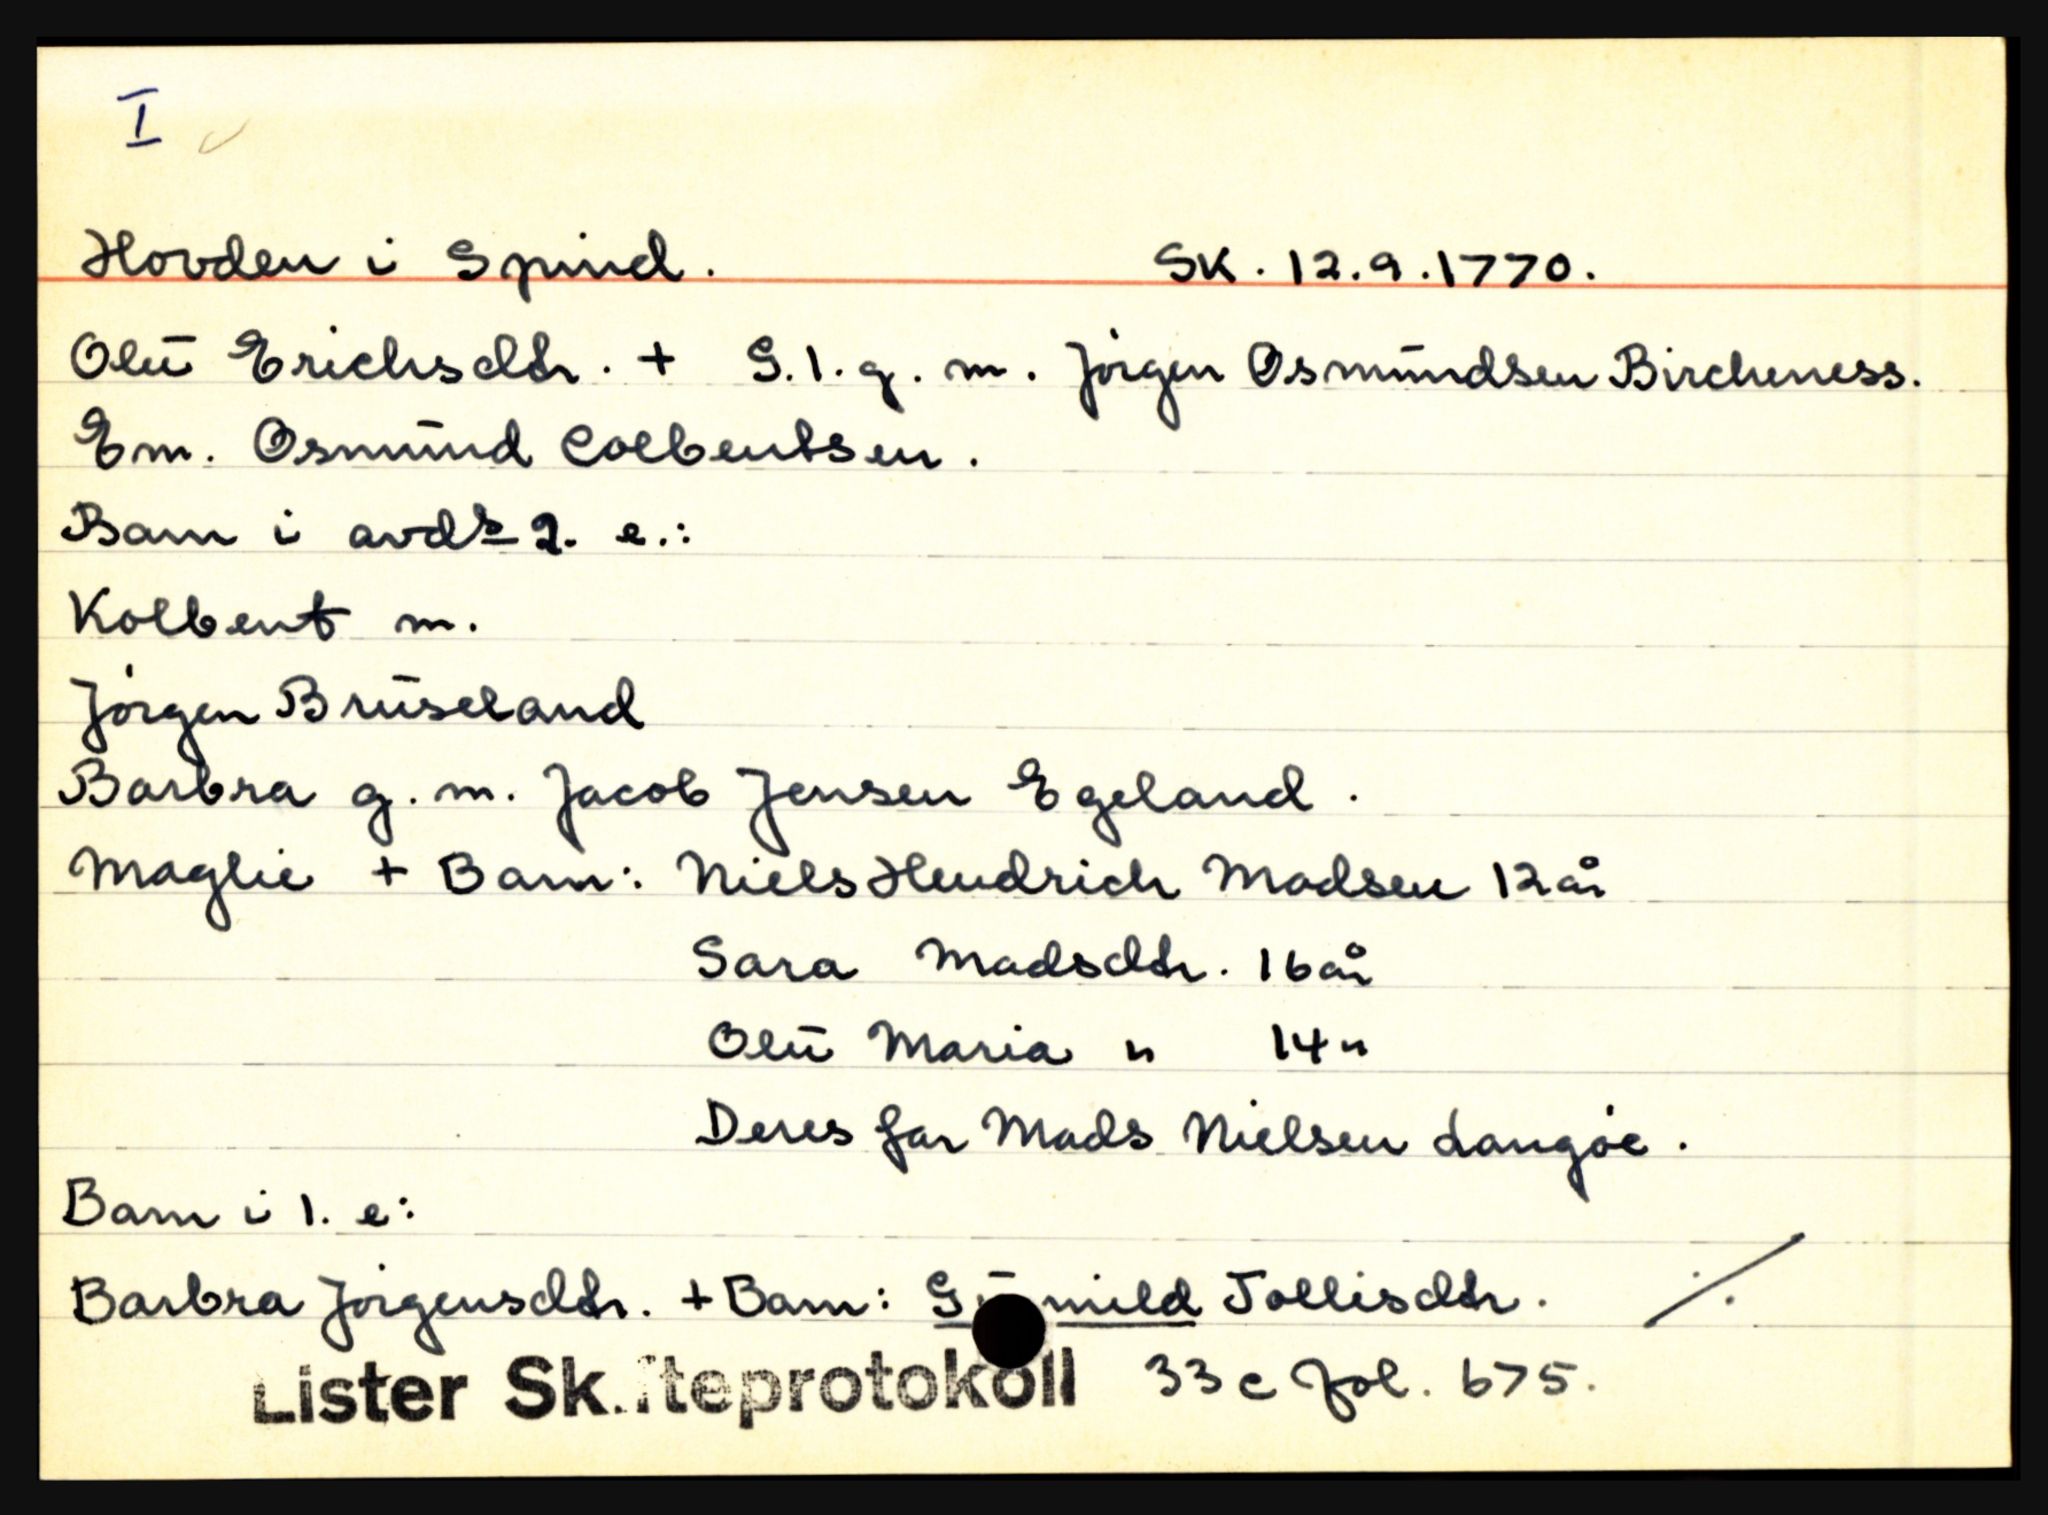 I
Hovden i Spind. SK. 12.9.1770.
Olu Erichsdtr. + G.1.g. m. Jørgen Osmundsen Bircheness.
Em. Osmund Colbentsen.
Barn i avds 2. e.:
Kolbent m.
Jørgen Bruseland
Barbra g. m. Jacob Jensen Egeland.
Maglie + Barn: Niels Hendrich Madsen 12 år
Sara Madsdtr. 16 år
Olu Maria " 14 "
Deres far Mads Nielsen Langøe.
Barn i 1. e:
Barbra Jørgensdtr. + Barn: Tollisdtr. ./.
Lister Skifteprotokoll 33 c fol. 675.